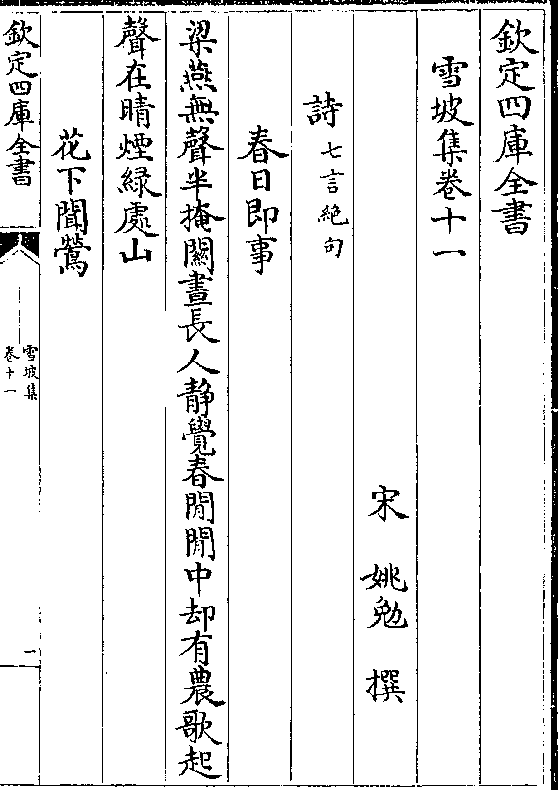 欽定四庫全書
雪坡集卷十一
宋 姚勉 撰
詩 七言絶句
春日即事
梁燕無聲半掩關晝長人靜覺春閒閒中却有農歌起
聲在晴煙緑處山
花下聞鶯
欽定四庫全書
雪坡集
卷十一
一